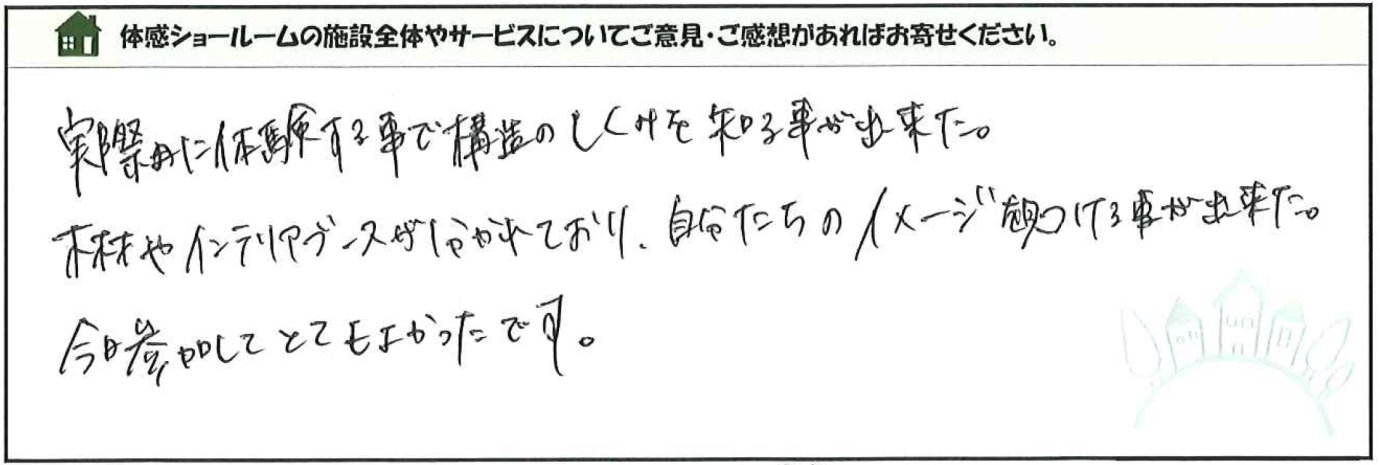 体感ショールームの施設全体やサービスについてご意見・ご感想があればお寄せください。
実際に体験する事で構造のしくみを知る事が出来た。
木材やインテリアブースが分かれており、自分たちのイメージ つける事が出来た。
今日参加してとてもよかったです。